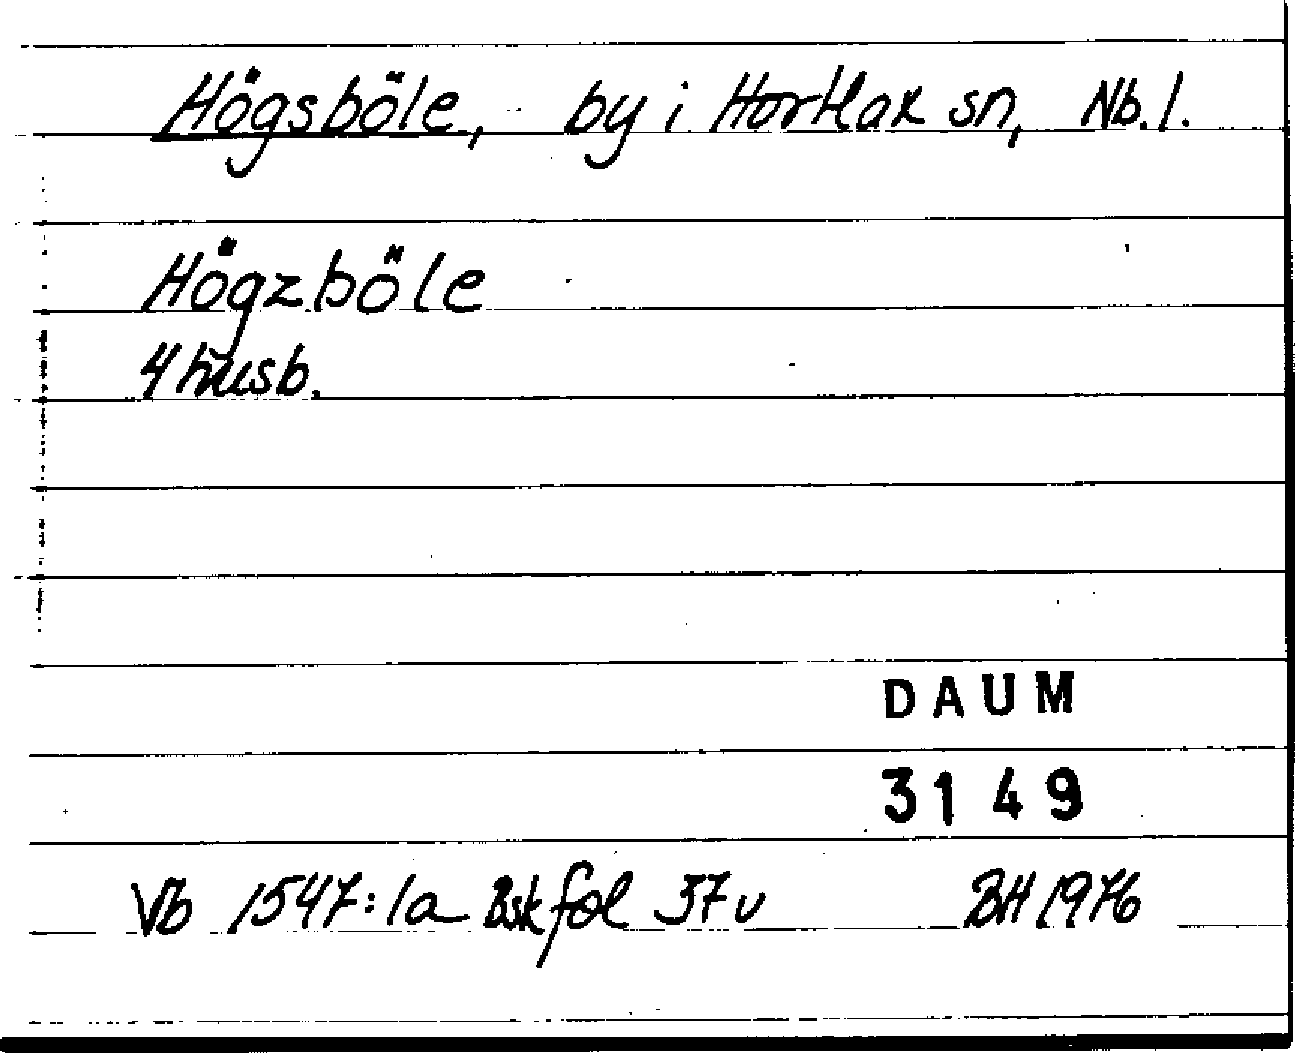 Högsböle, by i Hortlax sn, Nb. l.
Högzböle
4 husb.
DAUM
3149
Vb 1547:1a Bsk fol 37 v BH 1976